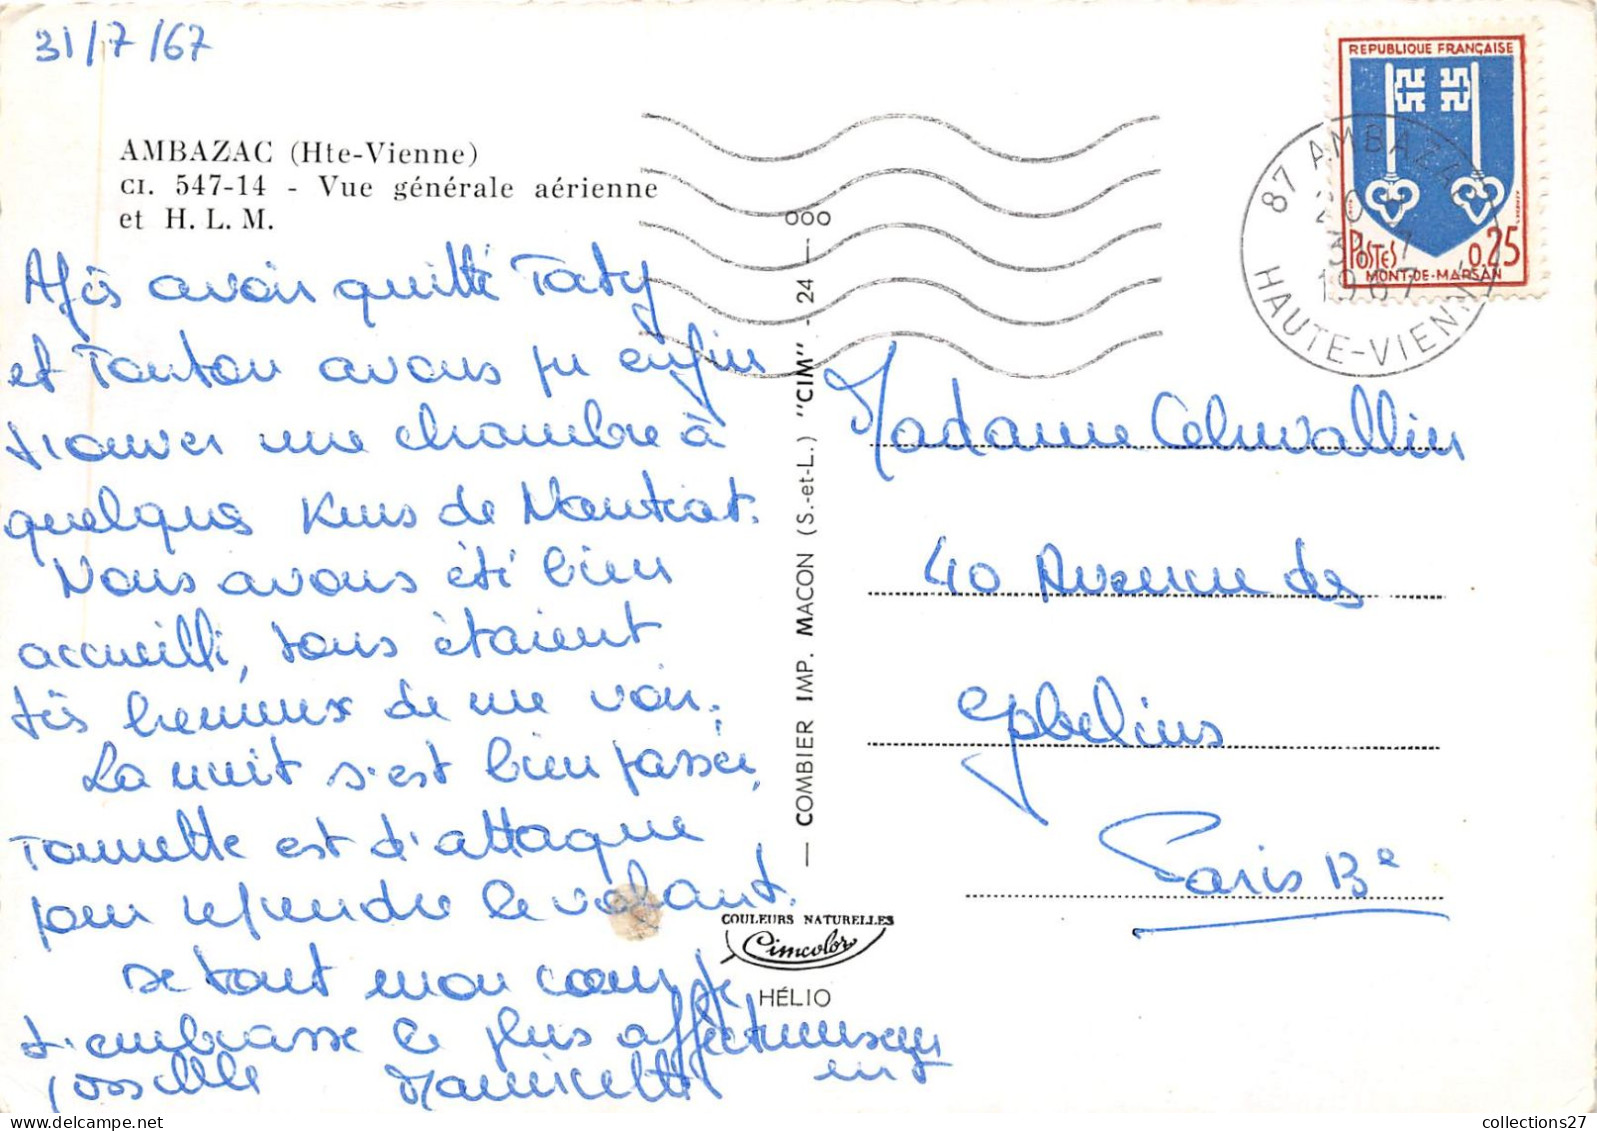 31/7/67
AMBAZAC (Hte-Vienne)
CI. 547-14 - Vue générale aérienne
et H. L. M.
Après avoir quitté Taty
et Tonton avons pu enfin
trouver une chambre à
quelques Kms de
Nous avons été bien
accueilli, tous étaient
très heureux de me voir.
La nuit s'est bien passée,
est d'attaque
pour reprendre le volant.
De tout mon coeur je
t'embrasse le plus affectueusem
ent
REPUBLIQUE FRANÇAISE
POSTES 0,25
MONT-DE-MARSAN
87 AMBAZAC
HAUTE-VIENNE
1967
— COMBIER IMP. MACON (S.-et-L.) "CIM" - 24 — 000
Madame
40 Avenue des
Gobelins
Paris 13e
COULEURS NATURELLES
Cimcolor
HÉLIO
collections27